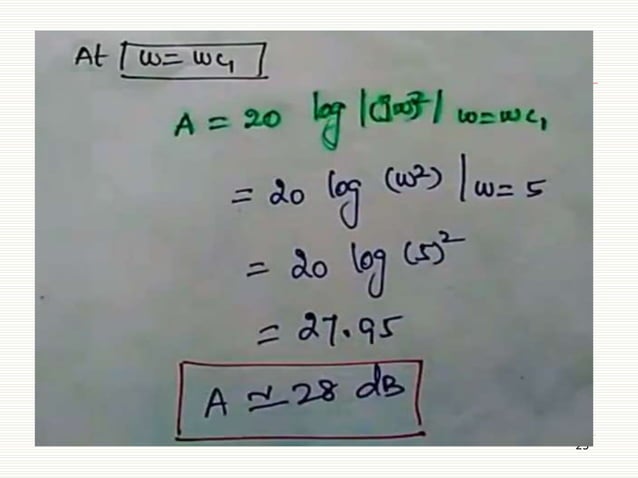 At w = wc₁
A = 20 log |(jω)²| w=wc₁
= 20 log (w²) | w= 5
= 20 log (5)²
= 27.95
A ≃ 28 dB